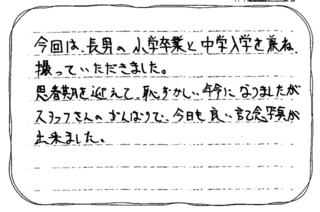 今回は、長男の小学卒業と中学入学を兼ね、
撮っていただきました。
思春期を迎えて、恥ずかしい年令になりましたが
スタッフさんのがんばりで、今日も良い記念写真が
出来ました。